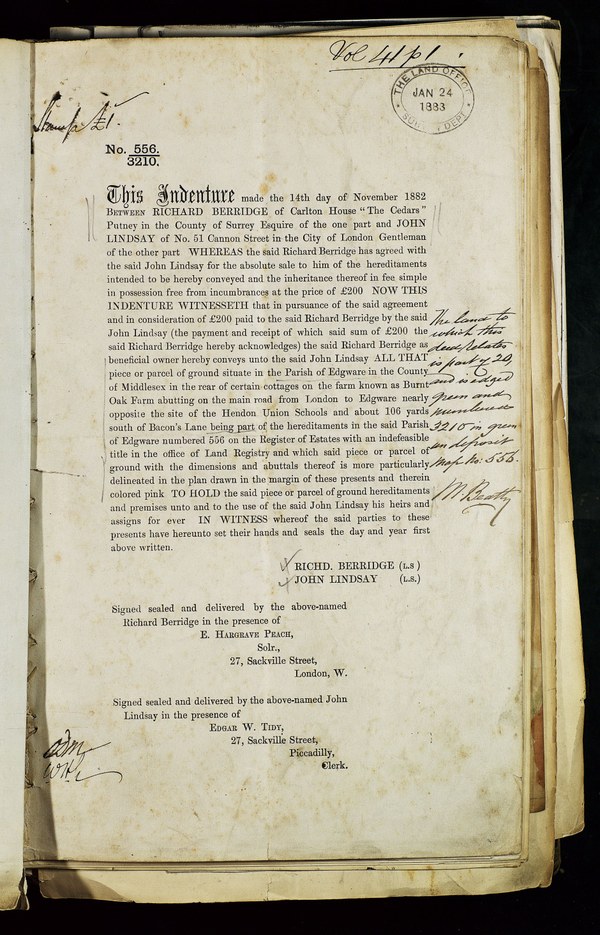 Vol 41 p 1.
THE LAND OFFICE
JAN 24
1883
DEPT
Stamp £1.
No. 556.
3210.
This Indenture made the 14th day of November 1882
BETWEEN RICHARD BERRIDGE of Carlton House "The Cedars"
Putney in the County of Surrey Esquire of the one part and JOHN
LINDSAY of No. 51 Cannon Street in the City of London Gentleman
of the other part WHEREAS the said Richard Berridge has agreed with
the said John Lindsay for the absolute sale to him of the hereditaments
intended to be hereby conveyed and the inheritance thereof in fee simple
in possession free from incumbrances at the price of £200 NOW THIS
INDENTURE WITNESSETH that in pursuance of the said agreement
and in consideration of £200 paid to the said Richard Berridge by the said
John Lindsay (the payment and receipt of which said sum of £200 the
said Richard Berridge hereby acknowledges) the said Richard Berridge as
beneficial owner hereby conveys unto the said John Lindsay ALL THAT
piece or parcel of ground situate in the Parish of Edgware in the County
of Middlesex in the rear of certain cottages on the farm known as Burnt
Oak Farm abutting on the main road from London to Edgware nearly
opposite the site of the Hendon Union Schools and about 106 yards
south of Bacon's Lane being part of the hereditaments in the said Parish
of Edgware numbered 556 on the Register of Estates with an indefeasible
title in the office of Land Registry and which said piece or parcel of
ground with the dimensions and abuttals thereof is more particularly
delineated in the plan drawn in the margin of these presents and therein
colored pink TO HOLD the said piece or parcel of ground hereditaments
and premises unto and to the use of the said John Lindsay his heirs and
assigns for ever IN WITNESS whereof the said parties to these
presents have hereunto set their hands and seals the day and year first
above written.
The land to
which this
deed relates
is part of 20,
and is edged
green and
numbered
3210 in green
on deposit
Map No: 556.
M Beatty
RICHD. BERRIDGE (L.S)
JOHN LINDSAY (L.S.)
Signed sealed and delivered by the above-named
Richard Berridge in the presence of
E. HARGRAVE PEACH,
Solr.,
27, Sackville Street,
London, W.
Signed sealed and delivered by the above-named John
Lindsay in the presence of
EDGAR W. TIDY,
27, Sackville Street,
Piccadilly,
Clerk.